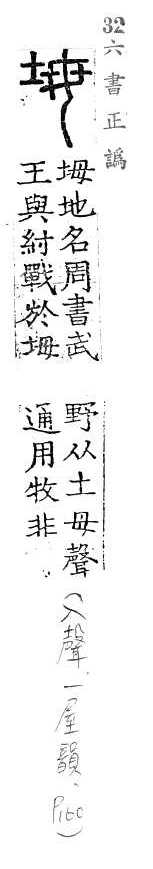 32六書正譌
坶
坶地名周書武
王與紂戰於坶
野从土母聲
通用牧非
(入聲、一屋韻、P160)